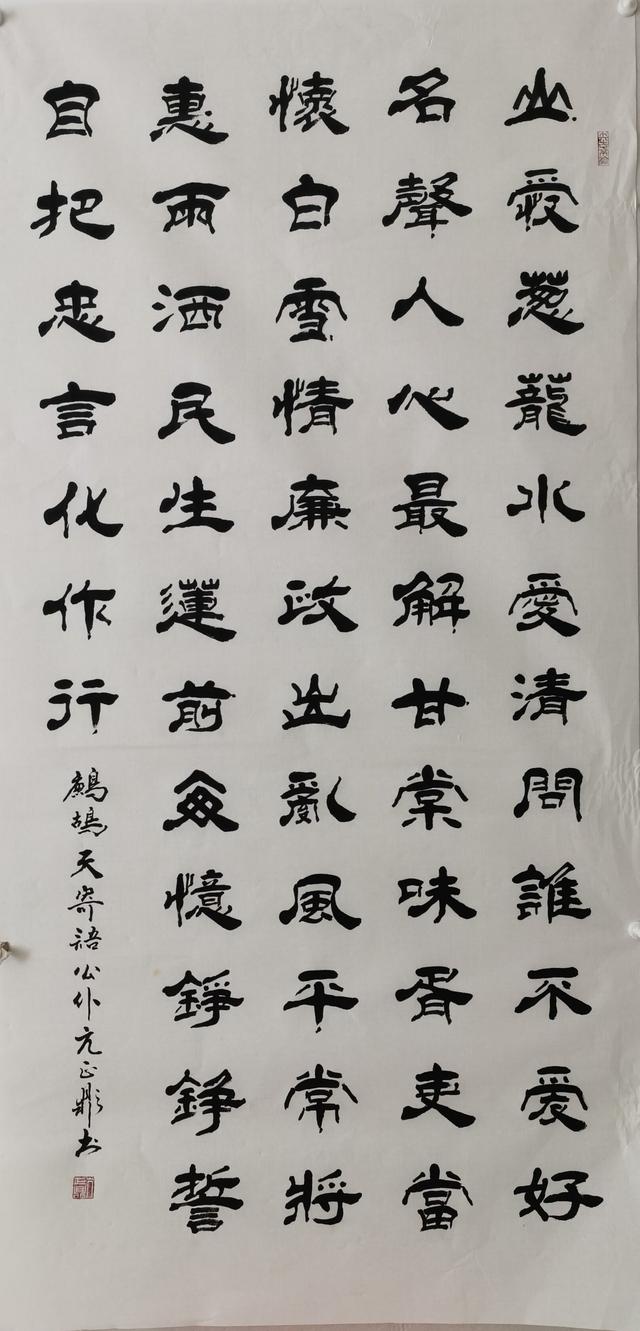 山愛葱蘢水愛清問誰不爱好
名聲人心最解甘棠味胥吏當
懷白雪情廉政出亂風平常將
惠雨洒民生蓮前每憶錚錚誓
自把忠言化作行
鷓鴣天寄語公仆亢正彫书